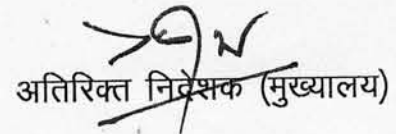 अतिरिक्त निदेशक (मुख्यालय)